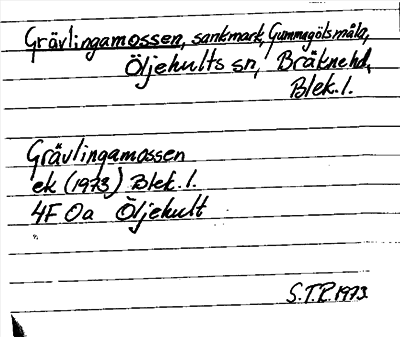 Grävlingamossen, sankmark, Gummagölsmåla,
Öljehults sn, Bräknehd,
Blek. l.
Grävlingamossen
ek (1973) Blek. l.
4F 0a Öljehult
S.T.P. 1973